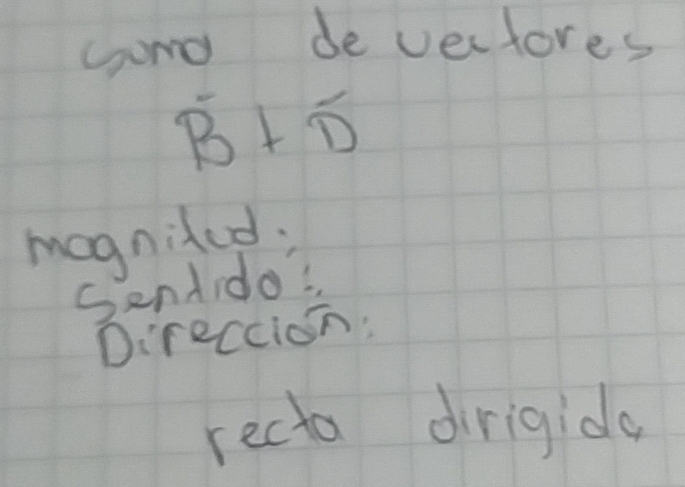 suma de vectores
B̄ + D̄
magnitud:
Sentido:
Dirección:
recta dirigida